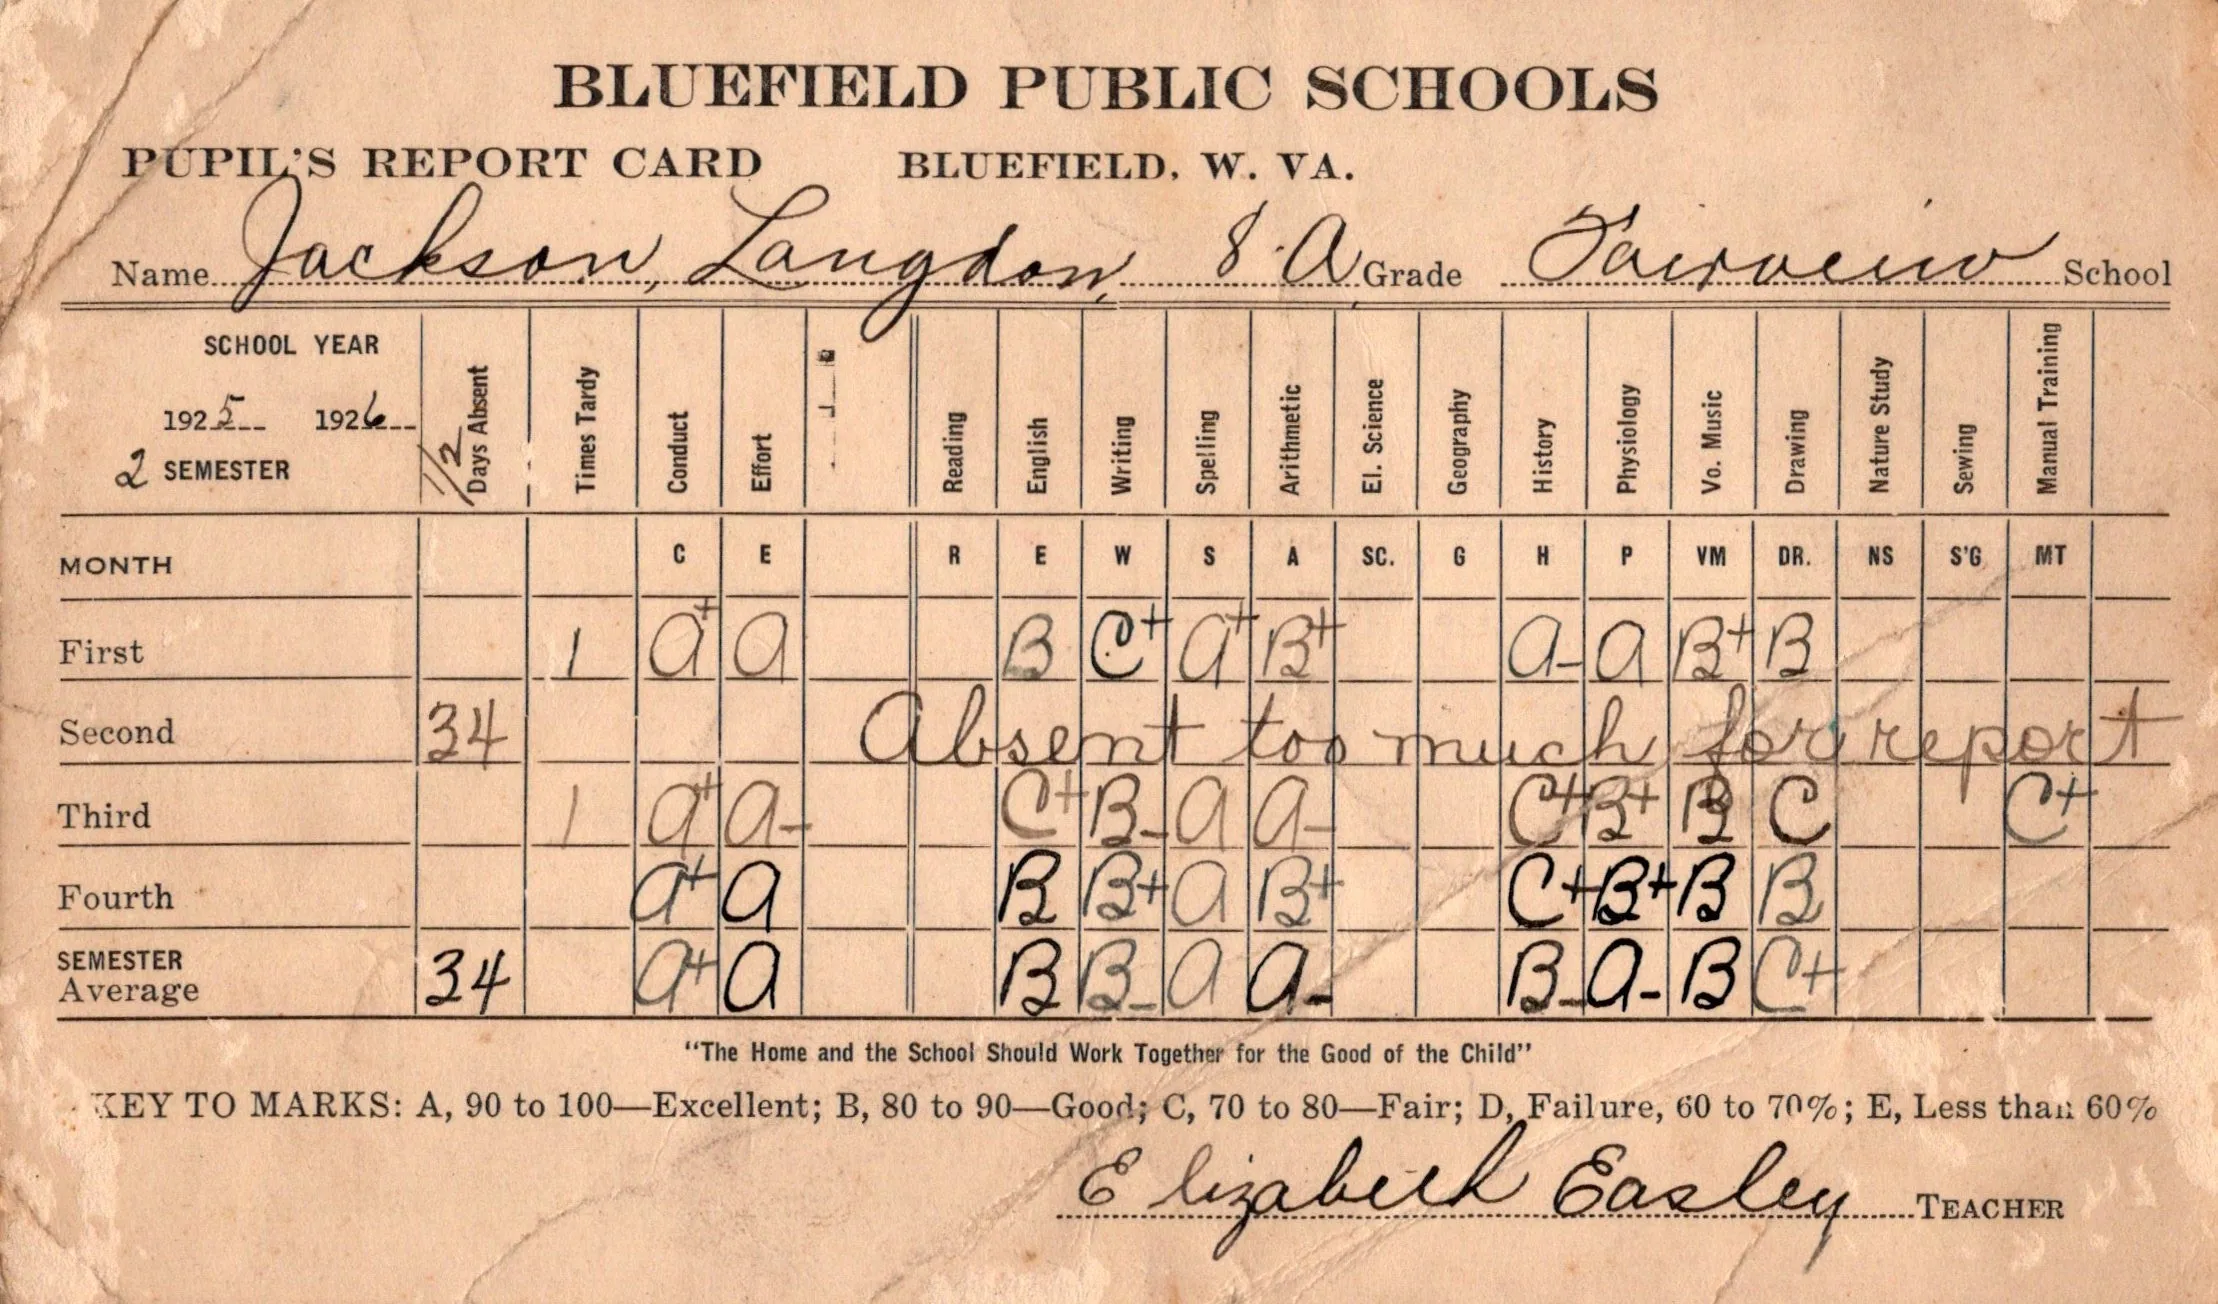 BLUEFIELD PUBLIC SCHOOLS
PUPIL'S REPORT CARD BLUEFIELD, W. VA.
Name Jackson, Langdon, 8 A Grade Fairview School
SCHOOL YEAR
1925 1926
2 SEMESTER
1/2 Days Absent Times Tardy Conduct Effort Reading English Writing Spelling Arithmetic El. Science Geography History Physiology Vo. Music Drawing Nature Study Sewing Manual Training
MONTH C E R E W S A SC. G H P VM DR. NS S'G MT
First 1 A+ A B C+ A+ B+ A- A B+ B
Second 34 Absent too much for report
Third 1 A+ A- C+ B- A A- C+ B+ B C C+
Fourth A+ A B B+ A B+ C+ B+ B B
SEMESTER
Average 34 A+ A B B- A A- B- A- B C+
"The Home and the School Should Work Together for the Good of the Child"
KEY TO MARKS: A, 90 to 100—Excellent; B, 80 to 90—Good; C, 70 to 80—Fair; D, Failure, 60 to 70%; E, Less than 60%
Elizabeth Easley TEACHER